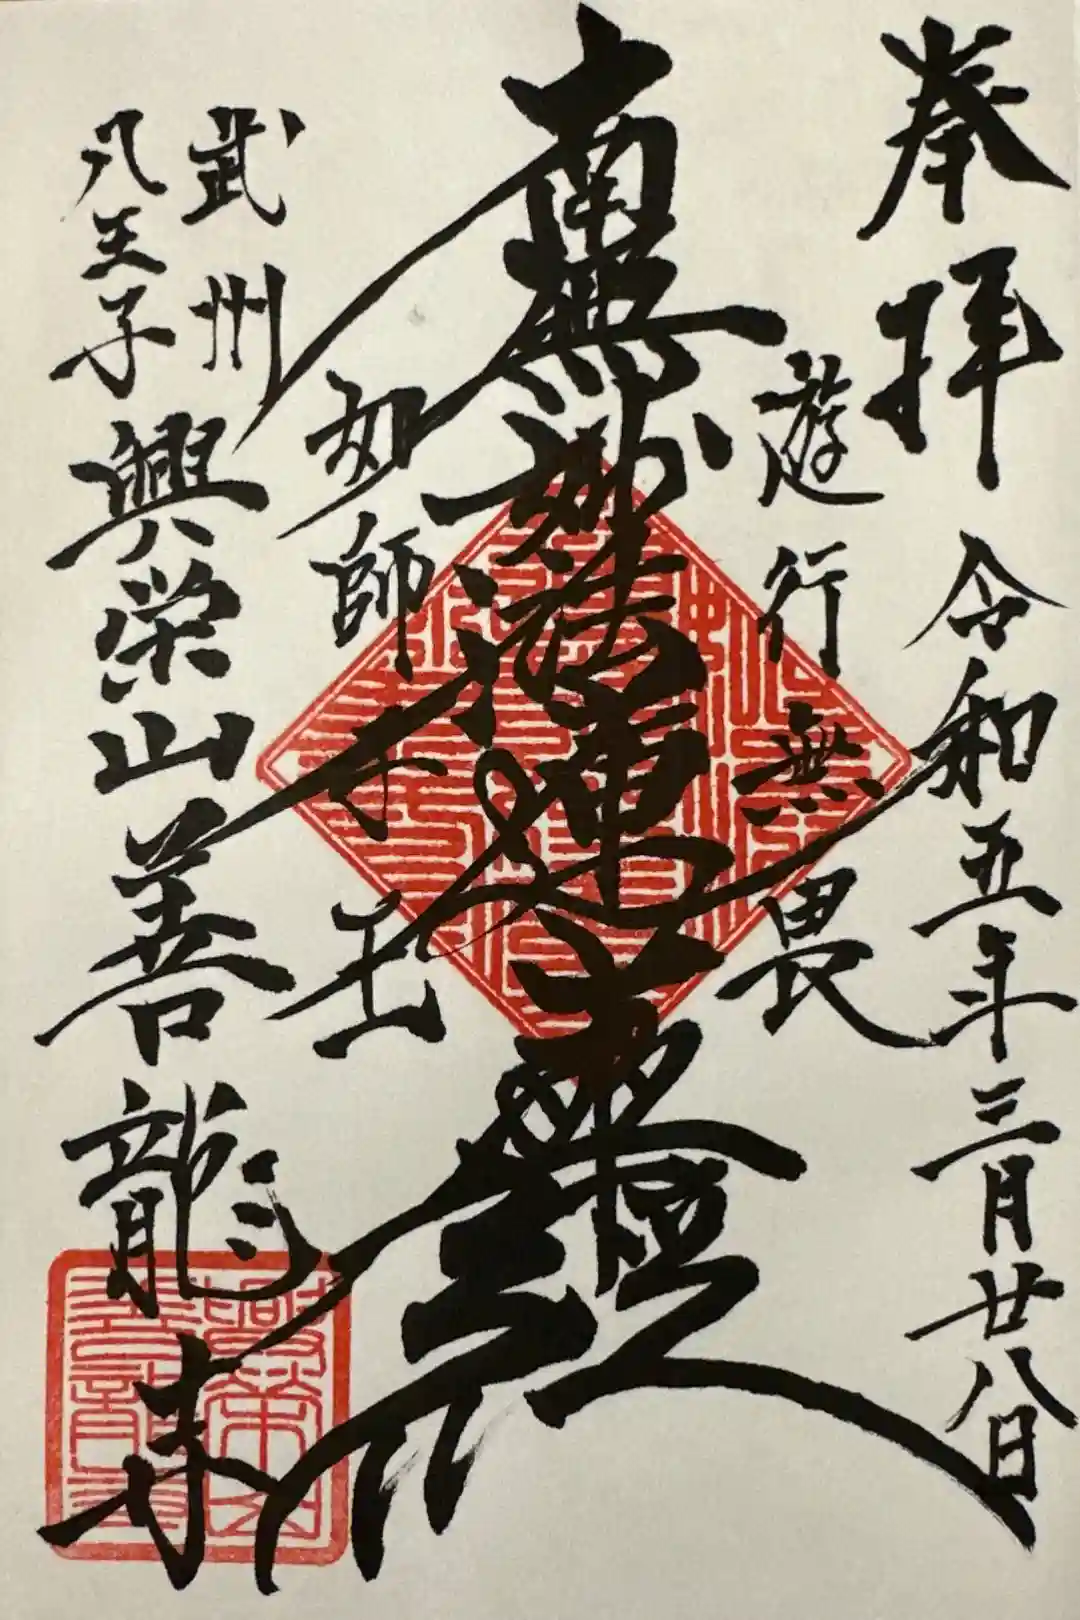 奉拝 令和五年三月廿八日
遊行無畏
南無妙法蓮華経
如師子王
武州
八王子
興栄山善龍寺